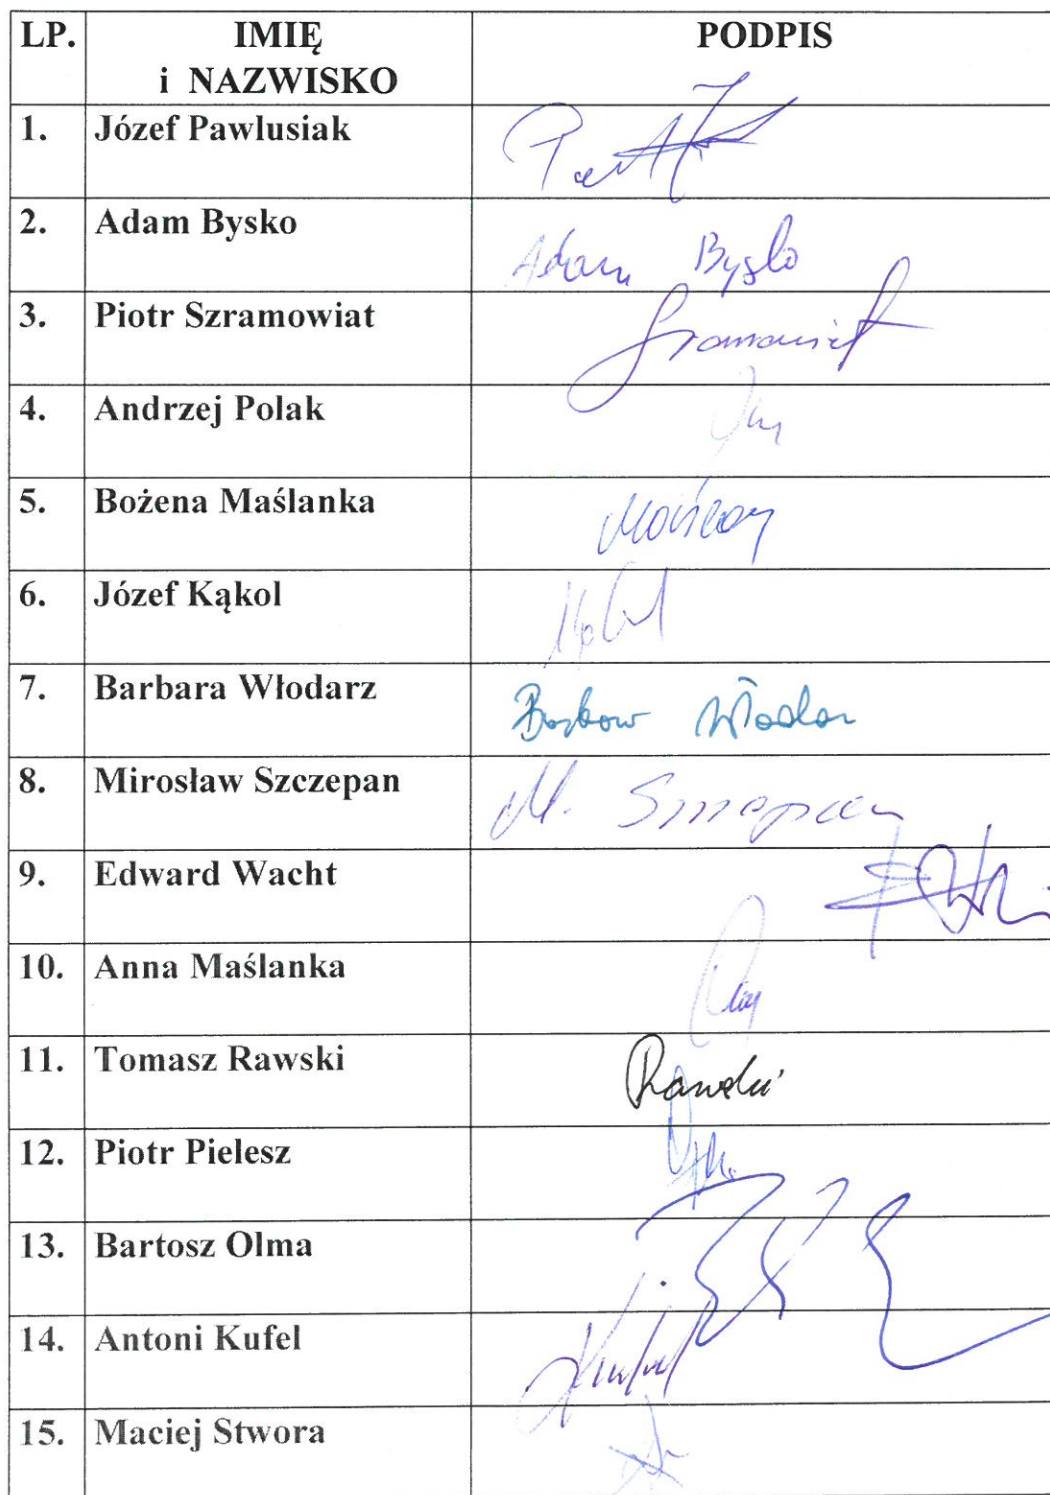 LP. IMIĘ PODPIS
i NAZWISKO
1. Józef Pawlusiak
2. Adam Bysko
Adam Bysko
3. Piotr Szramowiat
4. Andrzej Polak
5. Bożena Maślanka
6. Józef Kąkol
7. Barbara Włodarz
8. Mirosław Szczepan
M. Szczepan
9. Edward Wacht
10. Anna Maślanka
11. Tomasz Rawski
Rawski
12. Piotr Pielesz
13. Bartosz Olma
14. Antoni Kufel
15. Maciej Stwora